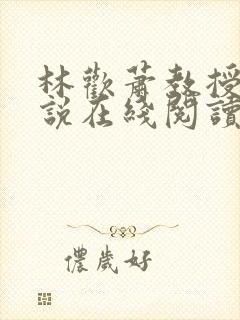 林歡蕭教授
說在綫閱讀
儂歲好